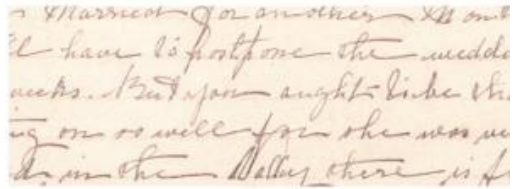 Married for another Mont
have to postpone the wedd
weeks. But you aught to be tha
ng on so well for she was
in the Valley there is